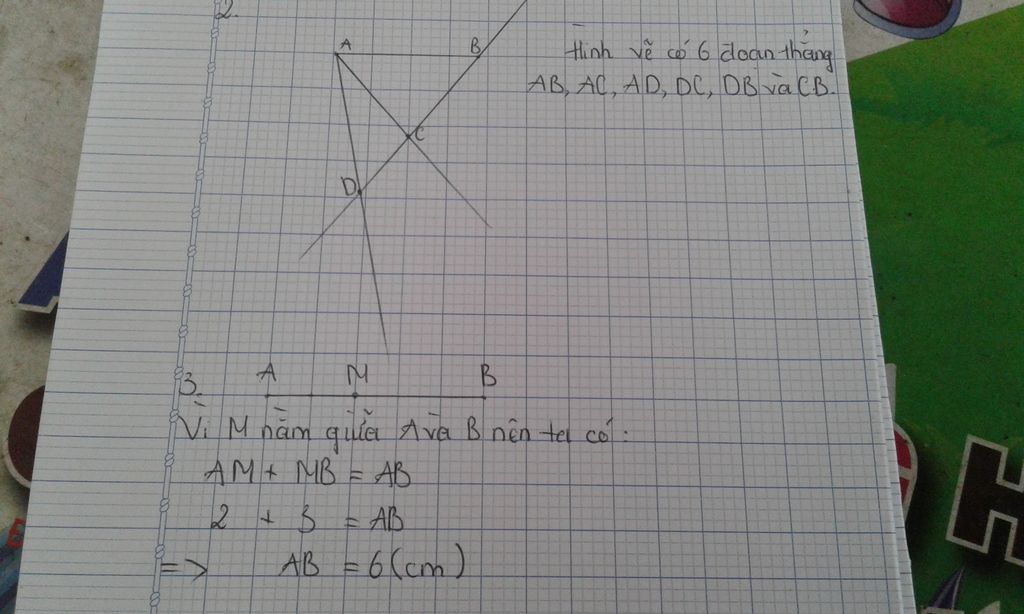 2.
A
B
C
D
Hình vẽ có 6 đoạn thẳng
AB, AC, AD, DC, DB và CB.
3.
A M B
Vì M nằm giữa A và B nên ta có:
AM + MB = AB
2 + 3 = AB
=> AB = 6 (cm)
H
E